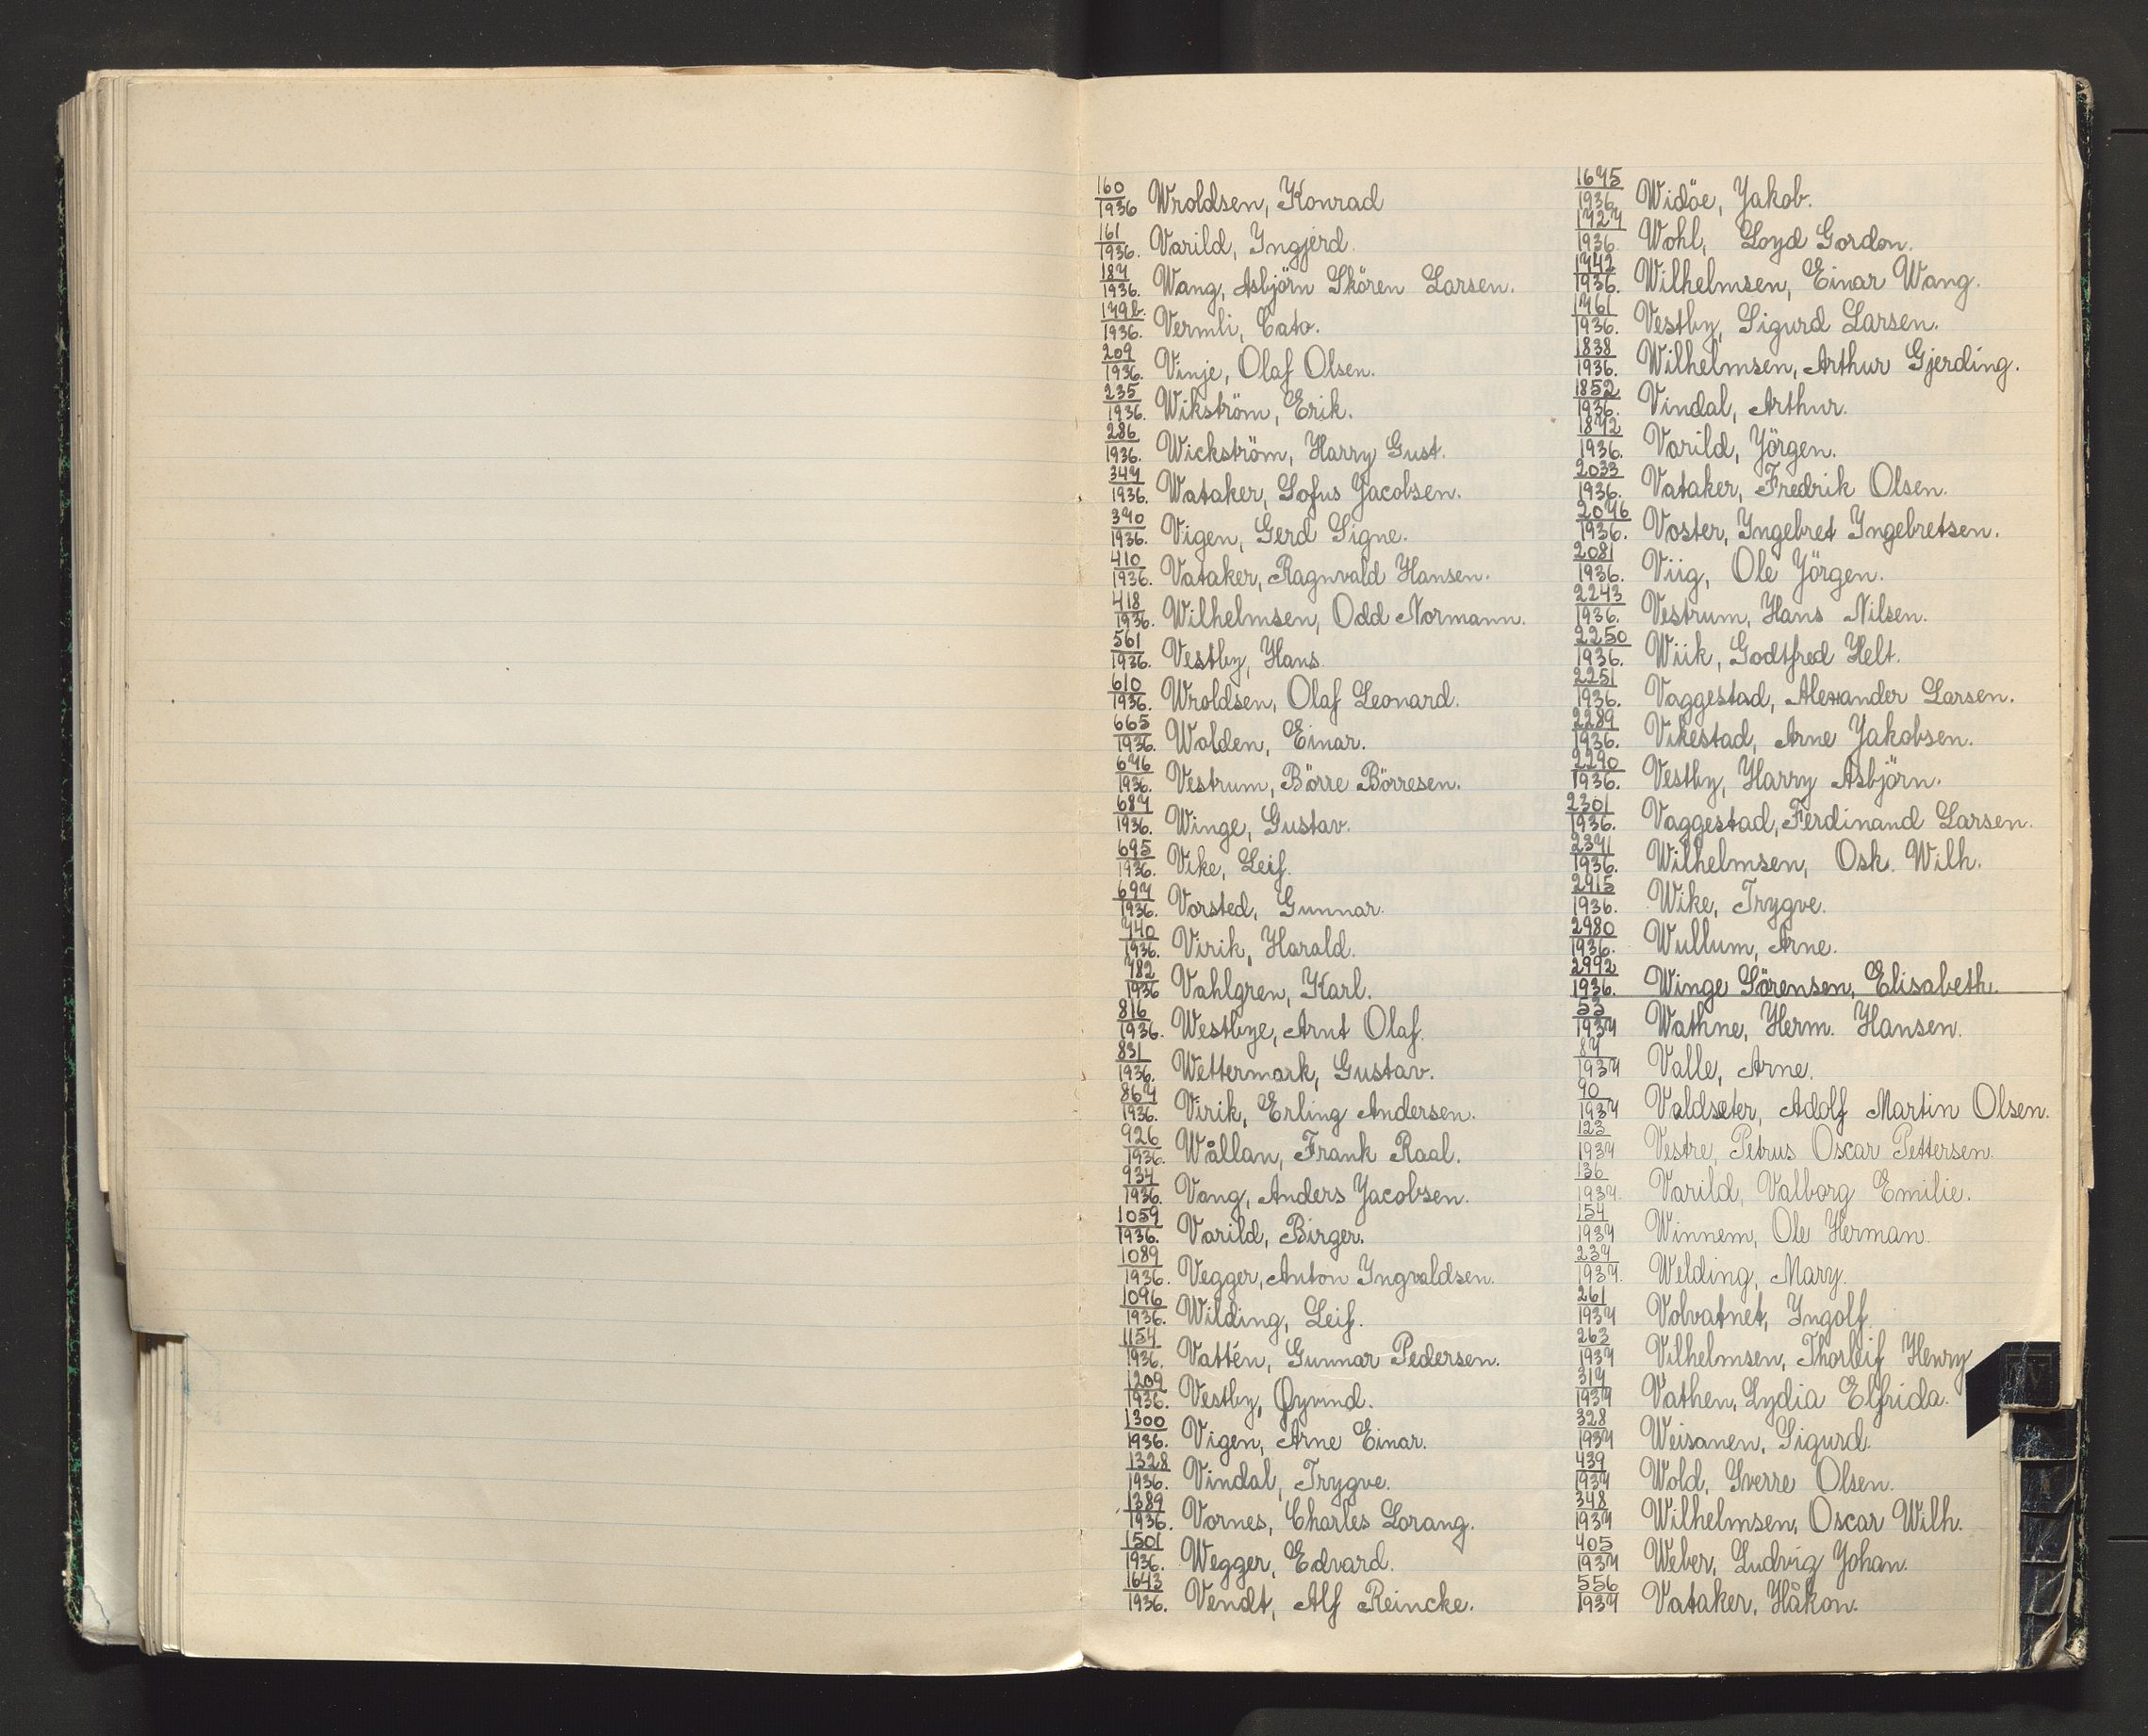 160/1936 Wroldsen, Konrad
161/1936. Varild, Yngjerd.
187/1936. Wang, Asbjörn Skören Larsen.
179b./1936. Vermli, Cato.
209/1936. Vinje, Olaf Olsen.
235/1936. Wikström, Erik.
286/1936. Wickström, Harry Gust.
347/1936. Wataker, Sofus Jacobsen.
370/1936. Vigen, Gerd Signe.
410/1936. Vataker, Ragnvald Hansen.
418/1936. Wilhelmsen, Odd Normann.
561/1936. Vestby, Hans.
610/1936. Wroldsen, Olaf Leonard.
665/1936. Wolden, Einar.
676/1936. Vestrum, Börre Börresen.
687/1936. Winge, Gustav.
695/1936. Vike, Leif.
697/1936. Vorsted, Gunnar.
740/1936. Virik, Harald.
782/1936 Vahlgren, Karl.
816/1936. Westbye, Arnt Olaf.
831/1936. Wettermark, Gustav.
867/1936. Virik, Erling Andersen.
926/1936. Wållan, Frank Raal.
937/1936. Vang, Anders Jacobsen.
1059/1936. Varild, Birger.
1089/1936. Vegger, Anton Yngvaldsen.
1096/1936. Wilding, Leif.
1157/1936. Vattén, Gunnar Pedersen.
1209/1936. Vestby, Øyvind.
1300/1936. Vigen, Arne Einar.
1328/1936. Vindal, Trygve.
1389/1936. Vornes, Charles Lorang.
1501/1936. Wegger, Edvard.
1643/1936. Vendt, Alf Reincke.
1675/1936. Widöe, Jakob.
1727/1936. Wohl, Loyd Gordon.
1742/1936. Wilhelmsen, Einar Wang.
1761/1936. Vestby, Sigurd Larsen.
1838/1936. Wilhelmsen, Arthur Gjerding.
1852/1936. Vindal, Arthur.
1872/1936. Varild, Jörgen.
2033/1936. Vataker, Fredrik Olsen.
2076/1936. Voster, Yngebret Yngebretsen.
2081/1936. Viig, Ole Jörgen.
2243/1936. Vestrum, Hans Nilsen.
2250/1936. Wiik, Godtfred Helt.
2251/1936. Vaggestad, Alexander Larsen.
2289/1936. Vikestad, Arne Jakobsen.
2290/1936. Vestby, Harry Asbjörn.
2301/1936. Vaggestad, Ferdinand Larsen.
2371/1936. Wilhelmsen, Osk. Wilh.
2915/1936. Wike, Trygve.
2980/1936. Wullum, Arne.
2992/1936. Winge Sörensen, Elisabeth.
53/1937 Wathne, Herm. Hansen.
87/1937 Valle, Arne.
90/1937 Valdseter, Adolf Martin Olsen.
123/1937 Vestre, Petrus Oscar Pettersen.
136/1937. Varild, Valborg Emilie.
154/1937 Winnem, Ole Herman.
237/1937. Welding, Mary.
261/1937 Volvatnet, Yngolf.
263/1937 Vilhelmsen, Thorleif Henry
317/1937 Vathen, Lydia Elfrida.
328/1937 Weisanen, Sigurd.
439/1937 Wold, Sverre Olsen.
348/1937 Wilhelmsen, Oscar Wilh.
405/1937 Weber, Ludvig Johan.
556/1937 Vataker, Håkon.